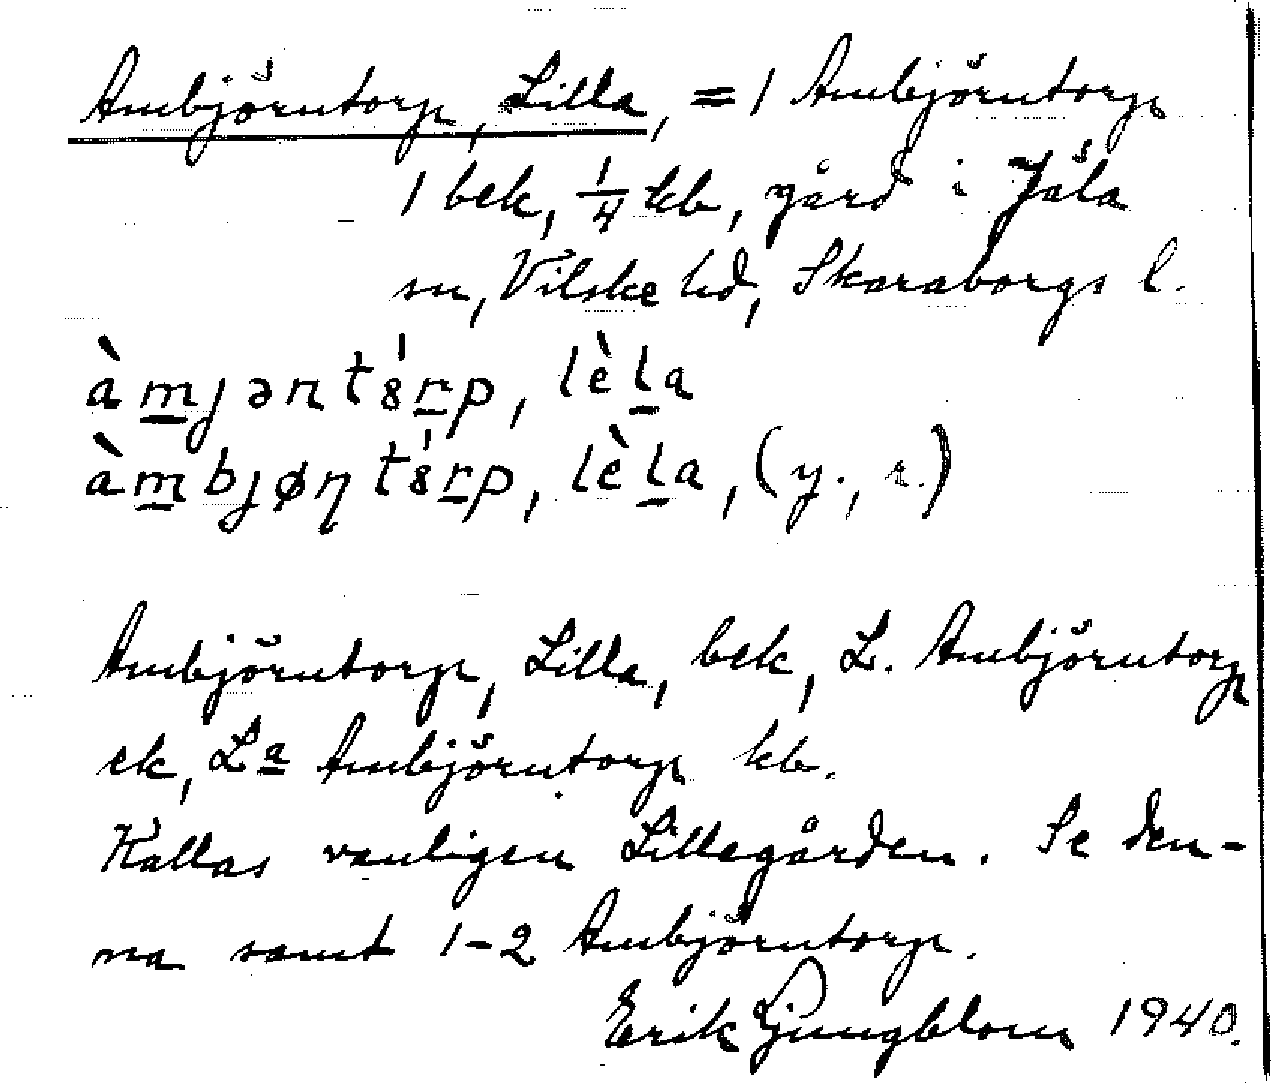 Ambjörntorp, Lilla, = 1 Ambjörntorp
1 bek, 1/4 kb, gård i Jäla
sn, Vilske hd, Skaraborgs l.
àmjəntȣ́rp, lèla
àmbjøntȣ́rp, lèla, (y., r.)
Ambjörntorp, Lilla, bek, L. Ambjörntorp
ek, La Ambjörntorp kb.
Kallas vanligen Lillegården. Se den-
na samt 1-2 Ambjörntorp.
Erik Ljungblom 1940.